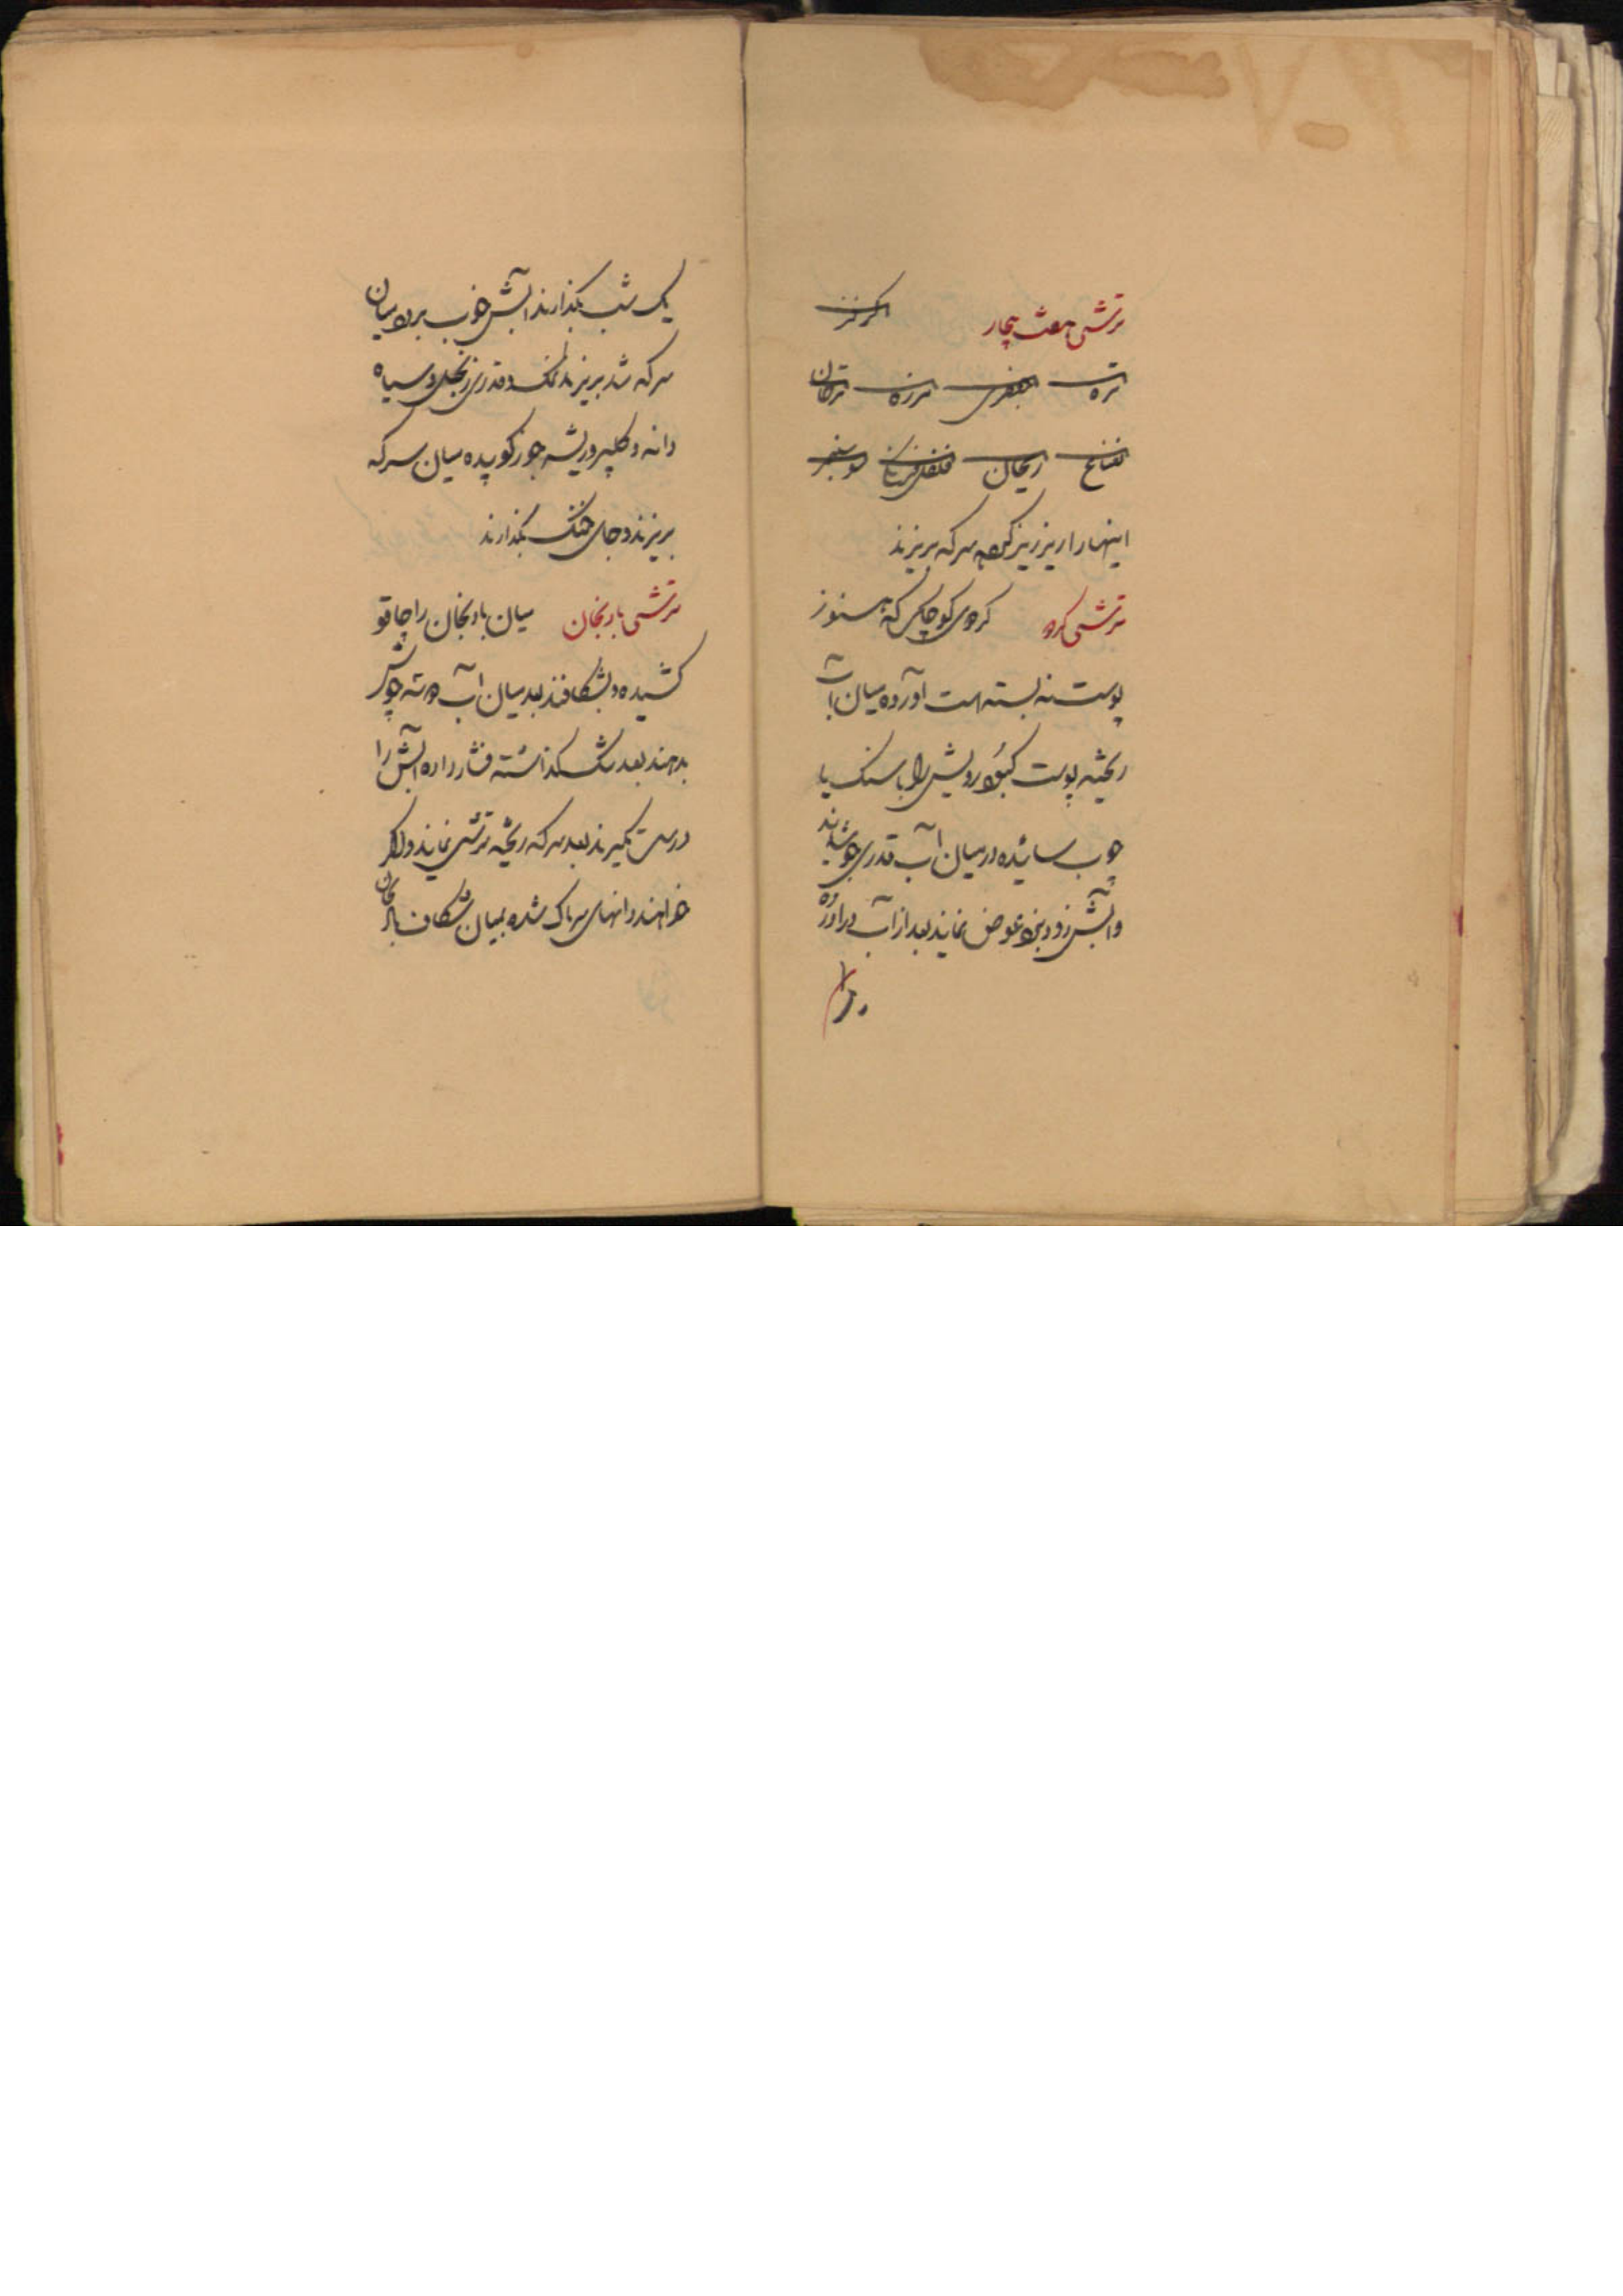 ترشی هفت بیجار
تره جعفری مرزه ترخان
نعناع ریحان
اینهارا ریز ریز کرده سرکه بریزند
ترشی کردو کردوی کوچکی که هنوز
پوست نه بسته است آورده میان آب
ریخته پوست کبود رویش را با سنک یا
چوب سائیده در میان آب قدری جوشانند
وآبش زود بزود عوض نمایند بعد از آب در آورده
یک شب بکذارند آبش خوب برود میان
سرکه شد بریزند نمک و قدری زنجبیل و سیاه
دانه و کلپر و ریشه جوز کوبیده میان سرکه
بریزند و جای خنک بکذارند
ترشی بادنجان میان بادنجان را چاقو
کشیده و بشکافند بعد میان آب دو سه جوش
بدهند بعد سنک کذاشته فشار داده آبش را
درست بکیرند بعد سرکه ریخته ترشی نمایند واکر
خواهند دانهای سرباک شده بمیان شکاف